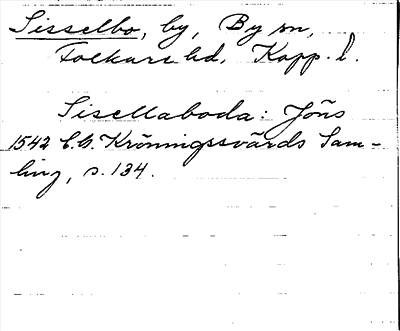 Sisselbo, by, By sn,
Folkare hd. Kopp. l.
Sisellaboda: Jöns
1542 C.G. Kröningssvärds Sam-
ling, s. 134.